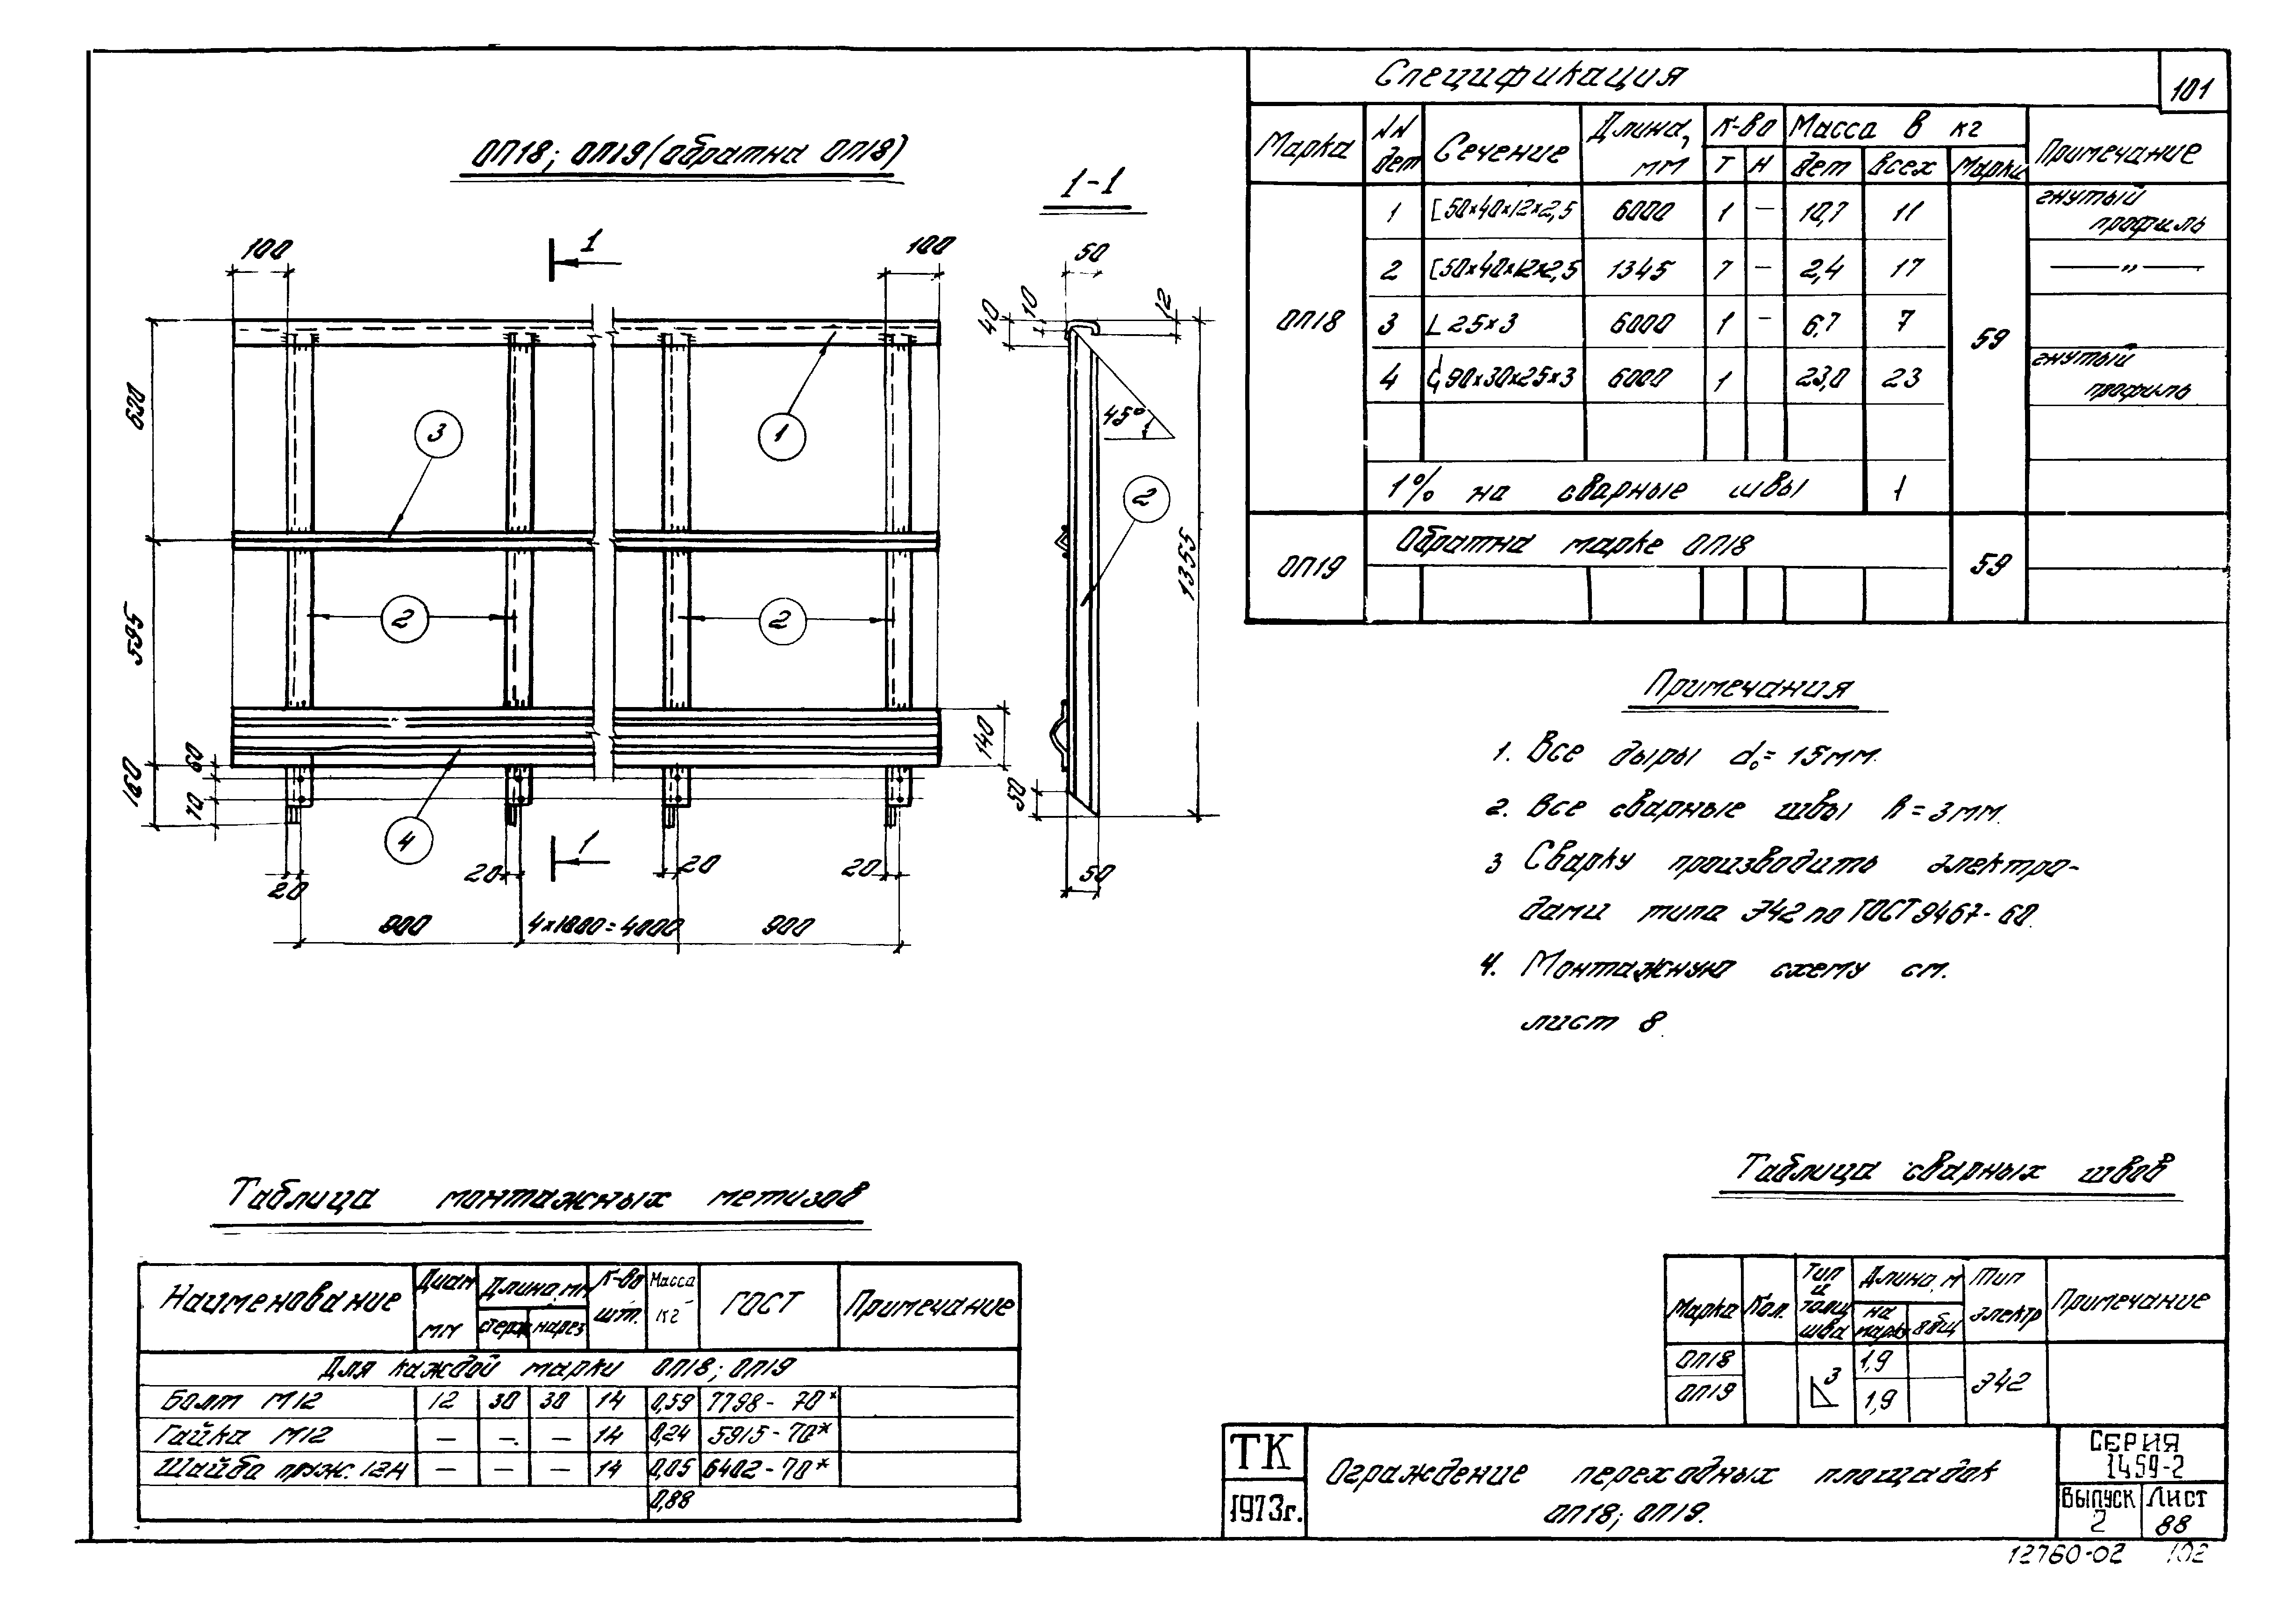 101
ОП18; ОП19 (обратна ОП18)
1-1
1
100
100
620
595
160
60
70
3
1
2
2
4
140
1
20
20
20
20
900
4×1000=4000
900
50
40
10
12
45°
2
1355
50
50
Спецификация
Марка
NN дет
Сечение
Длина, мм
К-во
Т
Н
Масса в кг
дет
всех
Марки
Примечание
ОП18
1 [50×40×12×2,5 6000 1 – 10,7 11 гнутый профиль
2 [50×40×12×2,5 1345 7 – 2,4 17 —„—
3 L 25×3 6000 1 – 6,7 7
59
4 90×30×25×3 6000 1 23,0 23 гнутый профиль
1% на сварные швы 1
ОП19 Обратна марке ОП18 59
Примечания
1. Все дыры d₀=15мм.
2. Все сварные швы h=3мм.
3 Сварку производить электро-
дами типа Э42 по ГОСТ 9467-60.
4. Монтажную схему см.
лист 8.
Таблица монтажных метизов
Наименование
Диам мм
Длина, мм
стерж
нарез
К-во шт.
Масса кг
ГОСТ
Примечание
Для каждой марки ОП18; ОП19
Болт М12 12 30 30 14 0,59 7798-70*
Гайка М12 – – – 14 0,24 5915-70*
Шайба пруж. 12Н – – – 14 0,05 6402-70*
0,88
Таблица сварных швов
Марка
Кол.
Тип и толщ шва
Длина, м
на марку
общ
Тип электр
Примечание
ОП18 1,9
3 Э42
ОП19 1,9
ТК
1973г.
Ограждение переходных площадок
ОП18; ОП19.
СЕРИЯ
1.459-2
ВЫПУСК
2
Лист
88
12760-02 102